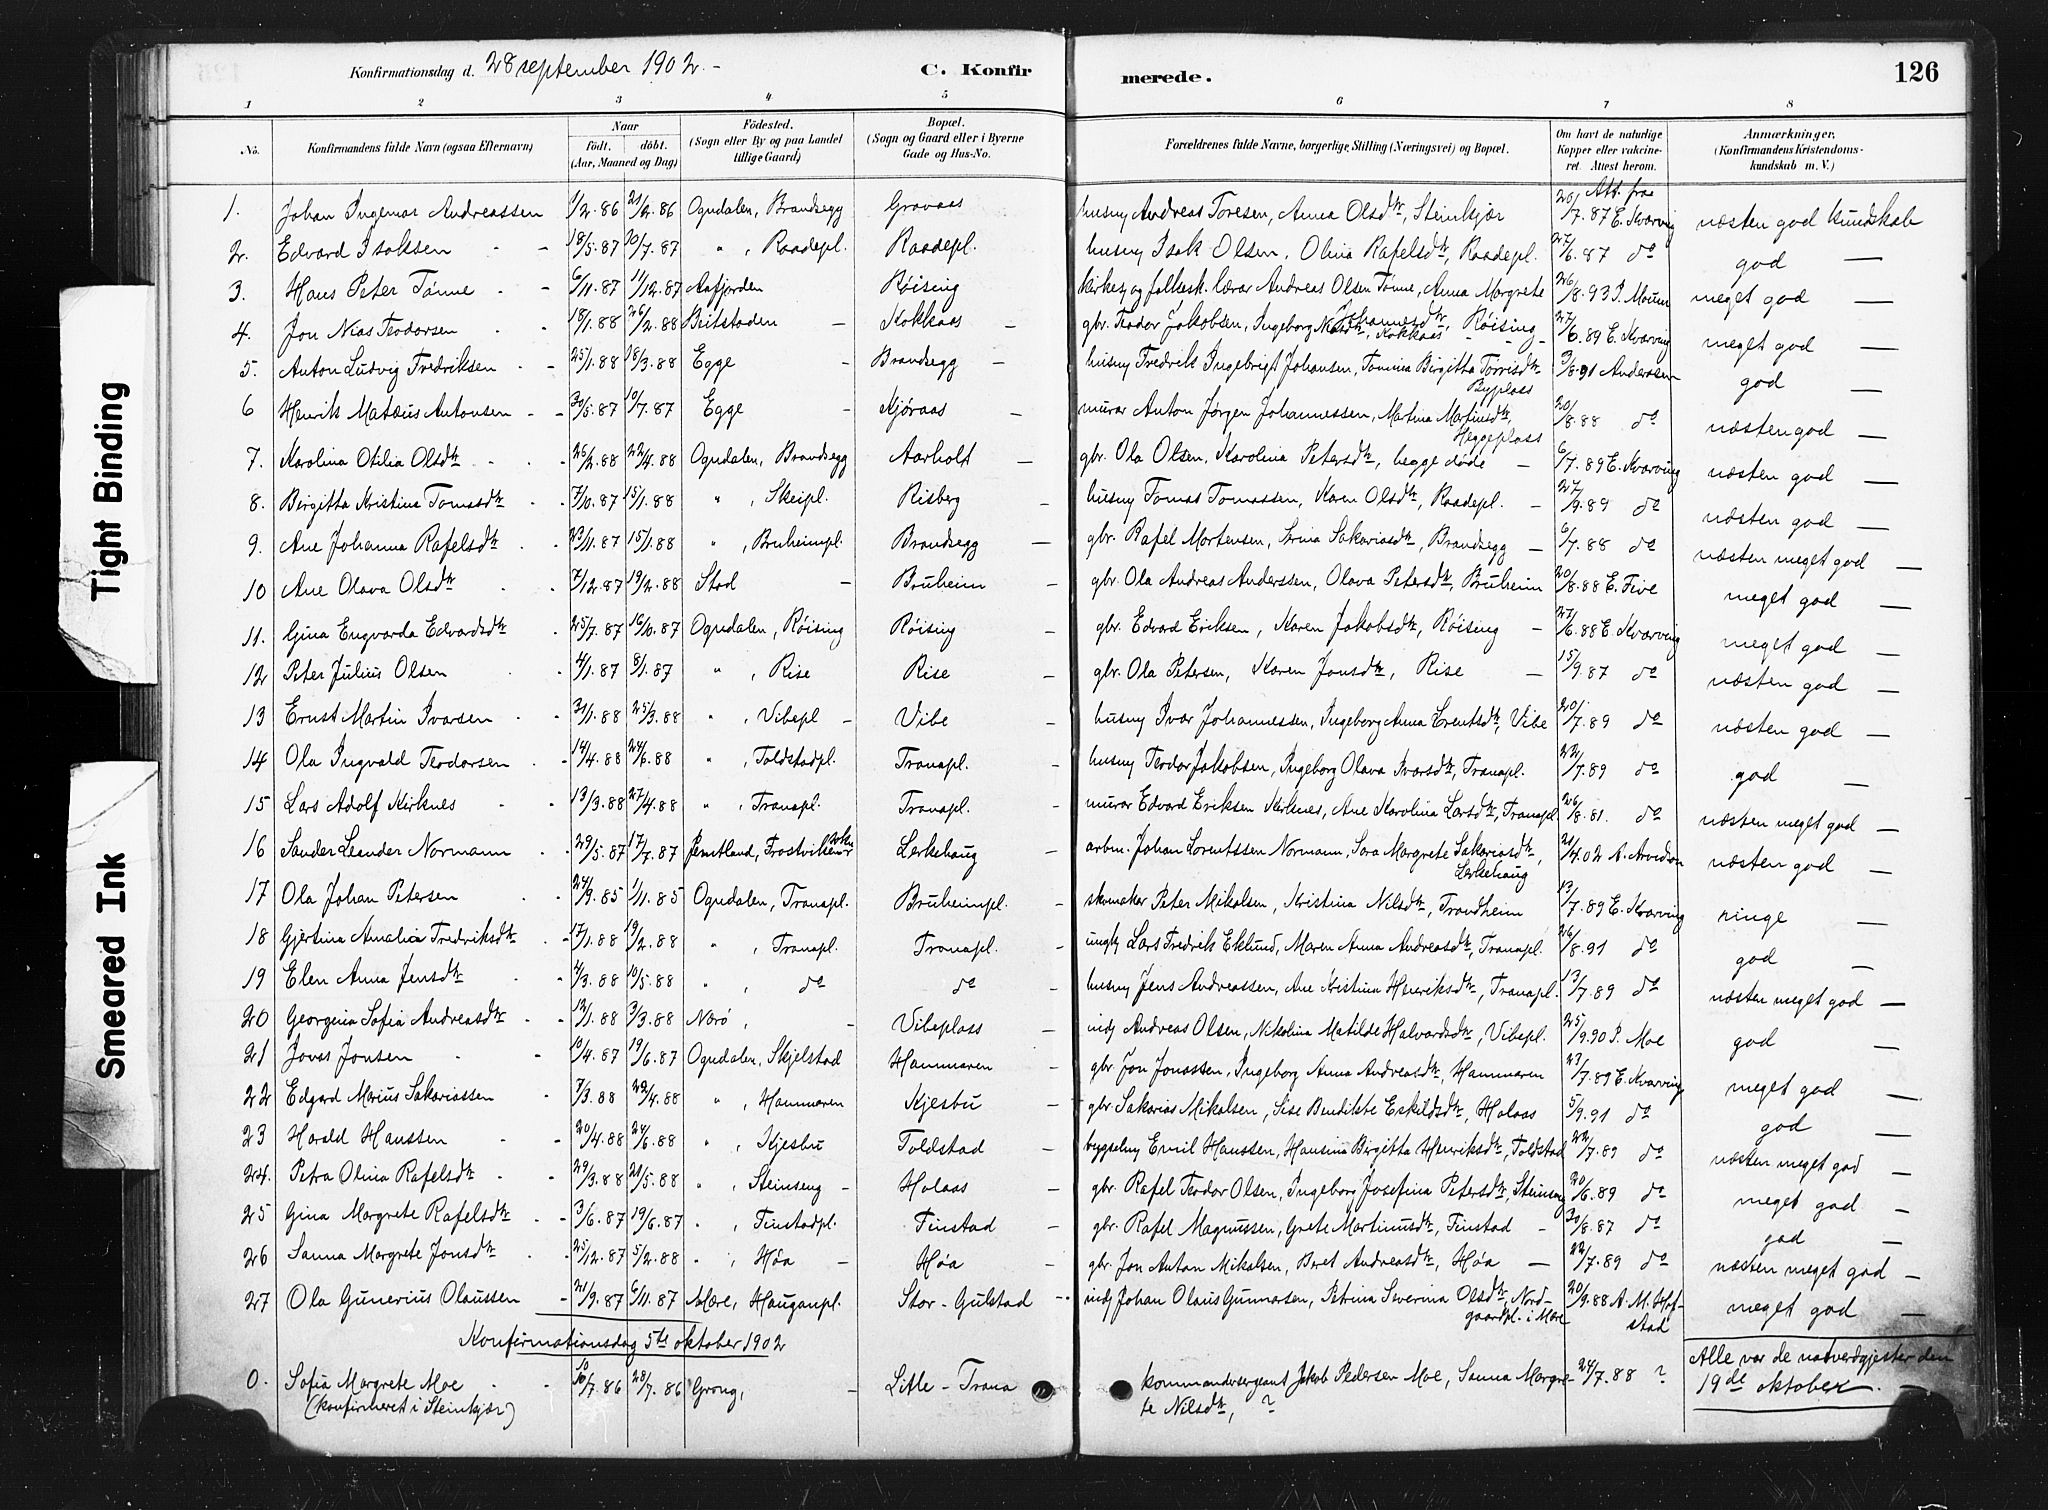 Konfirmationsdag d. 28 september 1902. - C. Konfirmerede. 126
1 2 3 4 5 6 7 8
No. Konfirmandens fulde Navn (ogsaa Efternavn) Naar født. døbt. (Aar, Maaned og Dag) Fødested. (Sogn eller By og paa Landet tillige Gaard) Bopæl. (Sogn og Gaard eller i Byerne Gade og Hus-No. Forældrenes fulde Navne, borgerlige Stilling (Næringsvei) og Bopæl. Om havt de naturlige Kopper eller vakcineret. Attest herom. Anmærkninger. (Konfirmandens Kristendomskundskab m. V.)
Att. fra
1. Johan Ingemar Andreassen 1/2.86 21/2.86 Ogndalen, Brandsegg Gravaas husmy Andreas Toresen, Anna Olsdtr, Steinkjær 20/7.87 E. Kvarving næsten god kundskab
2. Edvard Isaksen - - 19/5.87 10/7.87 " , Raadepl. Raadepl. husmy Isak Olsen, Olina Rafelsdtr, Raadepl. 27/6.87 do god —
3. Hans Peter Tønne - - 6/11.87 11/12.87 Aafjorden Røising kirkes. og folkesk. lærar Andreas Olsen Tønne, Anna Margrete 26/8.93 P. Moum meget god —
4. Jon Nias Teodorsen - - 18/1.88 26/2.88 Beitstaden - Kokkaas - gbr. Teodor Jakobsen, Ingeborg Johannesdtr, Kokkaas - Røising - 27/6.89 E. Kvarving meget god —
5. Anton Ludvig Fredriksen - - 25/1.88 18/3.88 Egge - Brandsegg - husmy Fredrik Ingebrigt Johansen, Tomina Birgitta Torrisdtr Byplass 3/8.91 Andersen god —
6 Henrik Matæus Antonsen - - 30/5.87 10/7.87 Egge - Kjøraas - murar Anton Jørgen Johannessen, Martina Martinusdtr, Heggeplass 20/8.88 do næsten god —
7. Karolina Otilia Olsdtr - - 26/2.88 22/4.88 Ogndalen, Brandsegg Aarholt - gbr. Ola Olsen, Karolina Petersdtr, begge døde - 6/7.89 E. Kvarving næsten god —
8. Birgitta Kristina Tomasdtr - 7/10.87 15/1.88 " , Skeipl. Risberg - husmy Tomas Tomassen, Karen Olsdtr, Raadepl. - 27/9.89 do næsten god —
9. Ane Johanna Rafelsdtr - - 23/11.87 15/1.88 " , Bruheimpl. Brandsegg - gbr. Rafel Mortensen, Serina Sakariasdtr, Brandsegg - 6/7.88 do næsten meget god —
10 Ane Olava Olsdtr - - 7/12.87 19/2.88 Stod - Bruheim - gbr. Ola Andreas Anderssen, Olava Petersdtr, Bruheim 20/8.88 E. Five meget god —
11. Gina Engvarda Edvardsdtr - 25/7.87 16/10.87 Ogndalen, Røising Røising - gbr. Edvard Eriksen, Karen Jakobsdtr, Røising - 27/6.88 E. Kvarving meget god —
12 Peter Julius Olsen - 4/1.87 8/1.87 " , Rise Rise - gbr. Ola Petersen, Karen Jonsdtr, Rise - 15/9.87 do næsten god —
13 Ernst Martin Ivarsen - - 31/1.88 25/3.88 " , Vibepl - Vibe - husmy Ivar Johannessen, Ingeborg Anna Lorentsdtr, Vibe 20/7.89 do næsten god —
14 Ola Ingvald Teodorsen - - 14/4.88 24/6.88 " , Toldstadpl. Tranapl. - husmy Teodor Jakobsen, Ingeborg Olava Ivarsdtr, Tranapl. 22/7.89 do god —
15 Lars Adolf Kirknes - - 13/3.88 27/4.88 " , Tranapl. Tranapl. - murar Edvard Eriksen Kirknes, Ane Karolina Larsdtr, Tranapl. 26/8.81. do næsten meget god —
16 Sander Leander Normann - - 29/5.87 17/7.87 Jemtland, Frostviken sokn Lerkehaug - arbm. Johan Lorentssen Normann, Sara Margrete Sakariasdtr, Lerkehaug 21/4.02 A. Arvidson næsten god —
17 Ola Johan Petersen - - 24/9.85 1/11.85 Ogndalen, Tranapl. Bruheimpl. - skomaker Peter Mikalsen, Kristina Nilsdtr, Trondheim 13/7.89 E. Kvarving ringe —
18 Gjertina Amalia Fredriksdtr - - 17/1.88 19/2.88 " , Tranapl. Tranapl. - Lars Fredrik Eklund, Maren Anna Andreasdtr, Tranapl. 26/8.91 do god —
19 Elen Anna Jensdtr - - 4/3.88 10/5.88 " , do do - husmy Jens Andreassen, Ane Kristina Henriksdtr, Tranapl. 13/7.89 do næsten meget god —
20 Georgina Sofia Andreasdtr - - 12/1.88 3/3.88 Nærø, - Vibeplass - indj Andreas Olsen, Nikolina Matilde Halvardsdtr, Vibepl. 25/9.90 P. Moe god —
21 Jonas Jonsen - - 10/4.87 19/6.87 Ogndalen, Skjelstad Hammaren - gbr. Jon Jonassen, Ingeborg Anna Andreasdtr, Hammaren 23/7.89 E. Kvarving meget god —
22 Edgard Marius Sakariassen - 7/3.88 22/4.88 " , Hammaren Kjesbu - gbr Sakarias Mikalsen, Sise Bendikte Eskildsdtr, Holaas 5/9.91 do god —
23 Harald Hanssen - - 20/4.88 24/6.88 " , Kjesbu Toldstad - bygselmy Emil Hanssen, Hansina Birgitta Henriksdtr, Toldstad 22/7.89 do næsten meget god —
24. Petra Olina Rafelsdtr - - 29/3.88 21/5.88 " , Steinseng - Holaas - gbr. Rafel Teodor Olsen, Ingeborg Josefina Petersdtr, Steinseng 20/6.89 do meget god —
25 Gina Margrete Rafelsdtr - - 3/6.87 19/6.87 " , Finstadpl. Finstad - gbr. Rafel Magnussen, Grete Martinusdtr, Finstad - 30/8.87 do god —
26 Sanna Margrete Jonsdtr - 25/12.87 5/2.88 " , Høa - Høa - gbr. Jon Anton Mikalsen, Beret Andreasdtr, Høa - 22/7.89 do næsten meget god —
27 Ola Gunerius Olaussen - 21/9.87 6/11.87 Mære, Hauganpl. Stor-Gulstad - indj Johan Olaus Gunnarsen, Petrina Severina Olsdtr, Nordgaardpl. i Mære 20/9.88 A. M. Hofstad meget god —
Konfirmationsdag 5te oktober 1902
0. Sofia Margrete Moe - - 10/7.86 28/7.86 Grong, - Litle-Trana kommandersergeant Jakob Pedersen Moe, Sanna Margrete Nilsdtr, ? 24/7.88 ?
(konfirmeret i Steinkjær)
Alle var de nadverdgjester den
19de oktober. —
Tight Binding
Smeared Ink